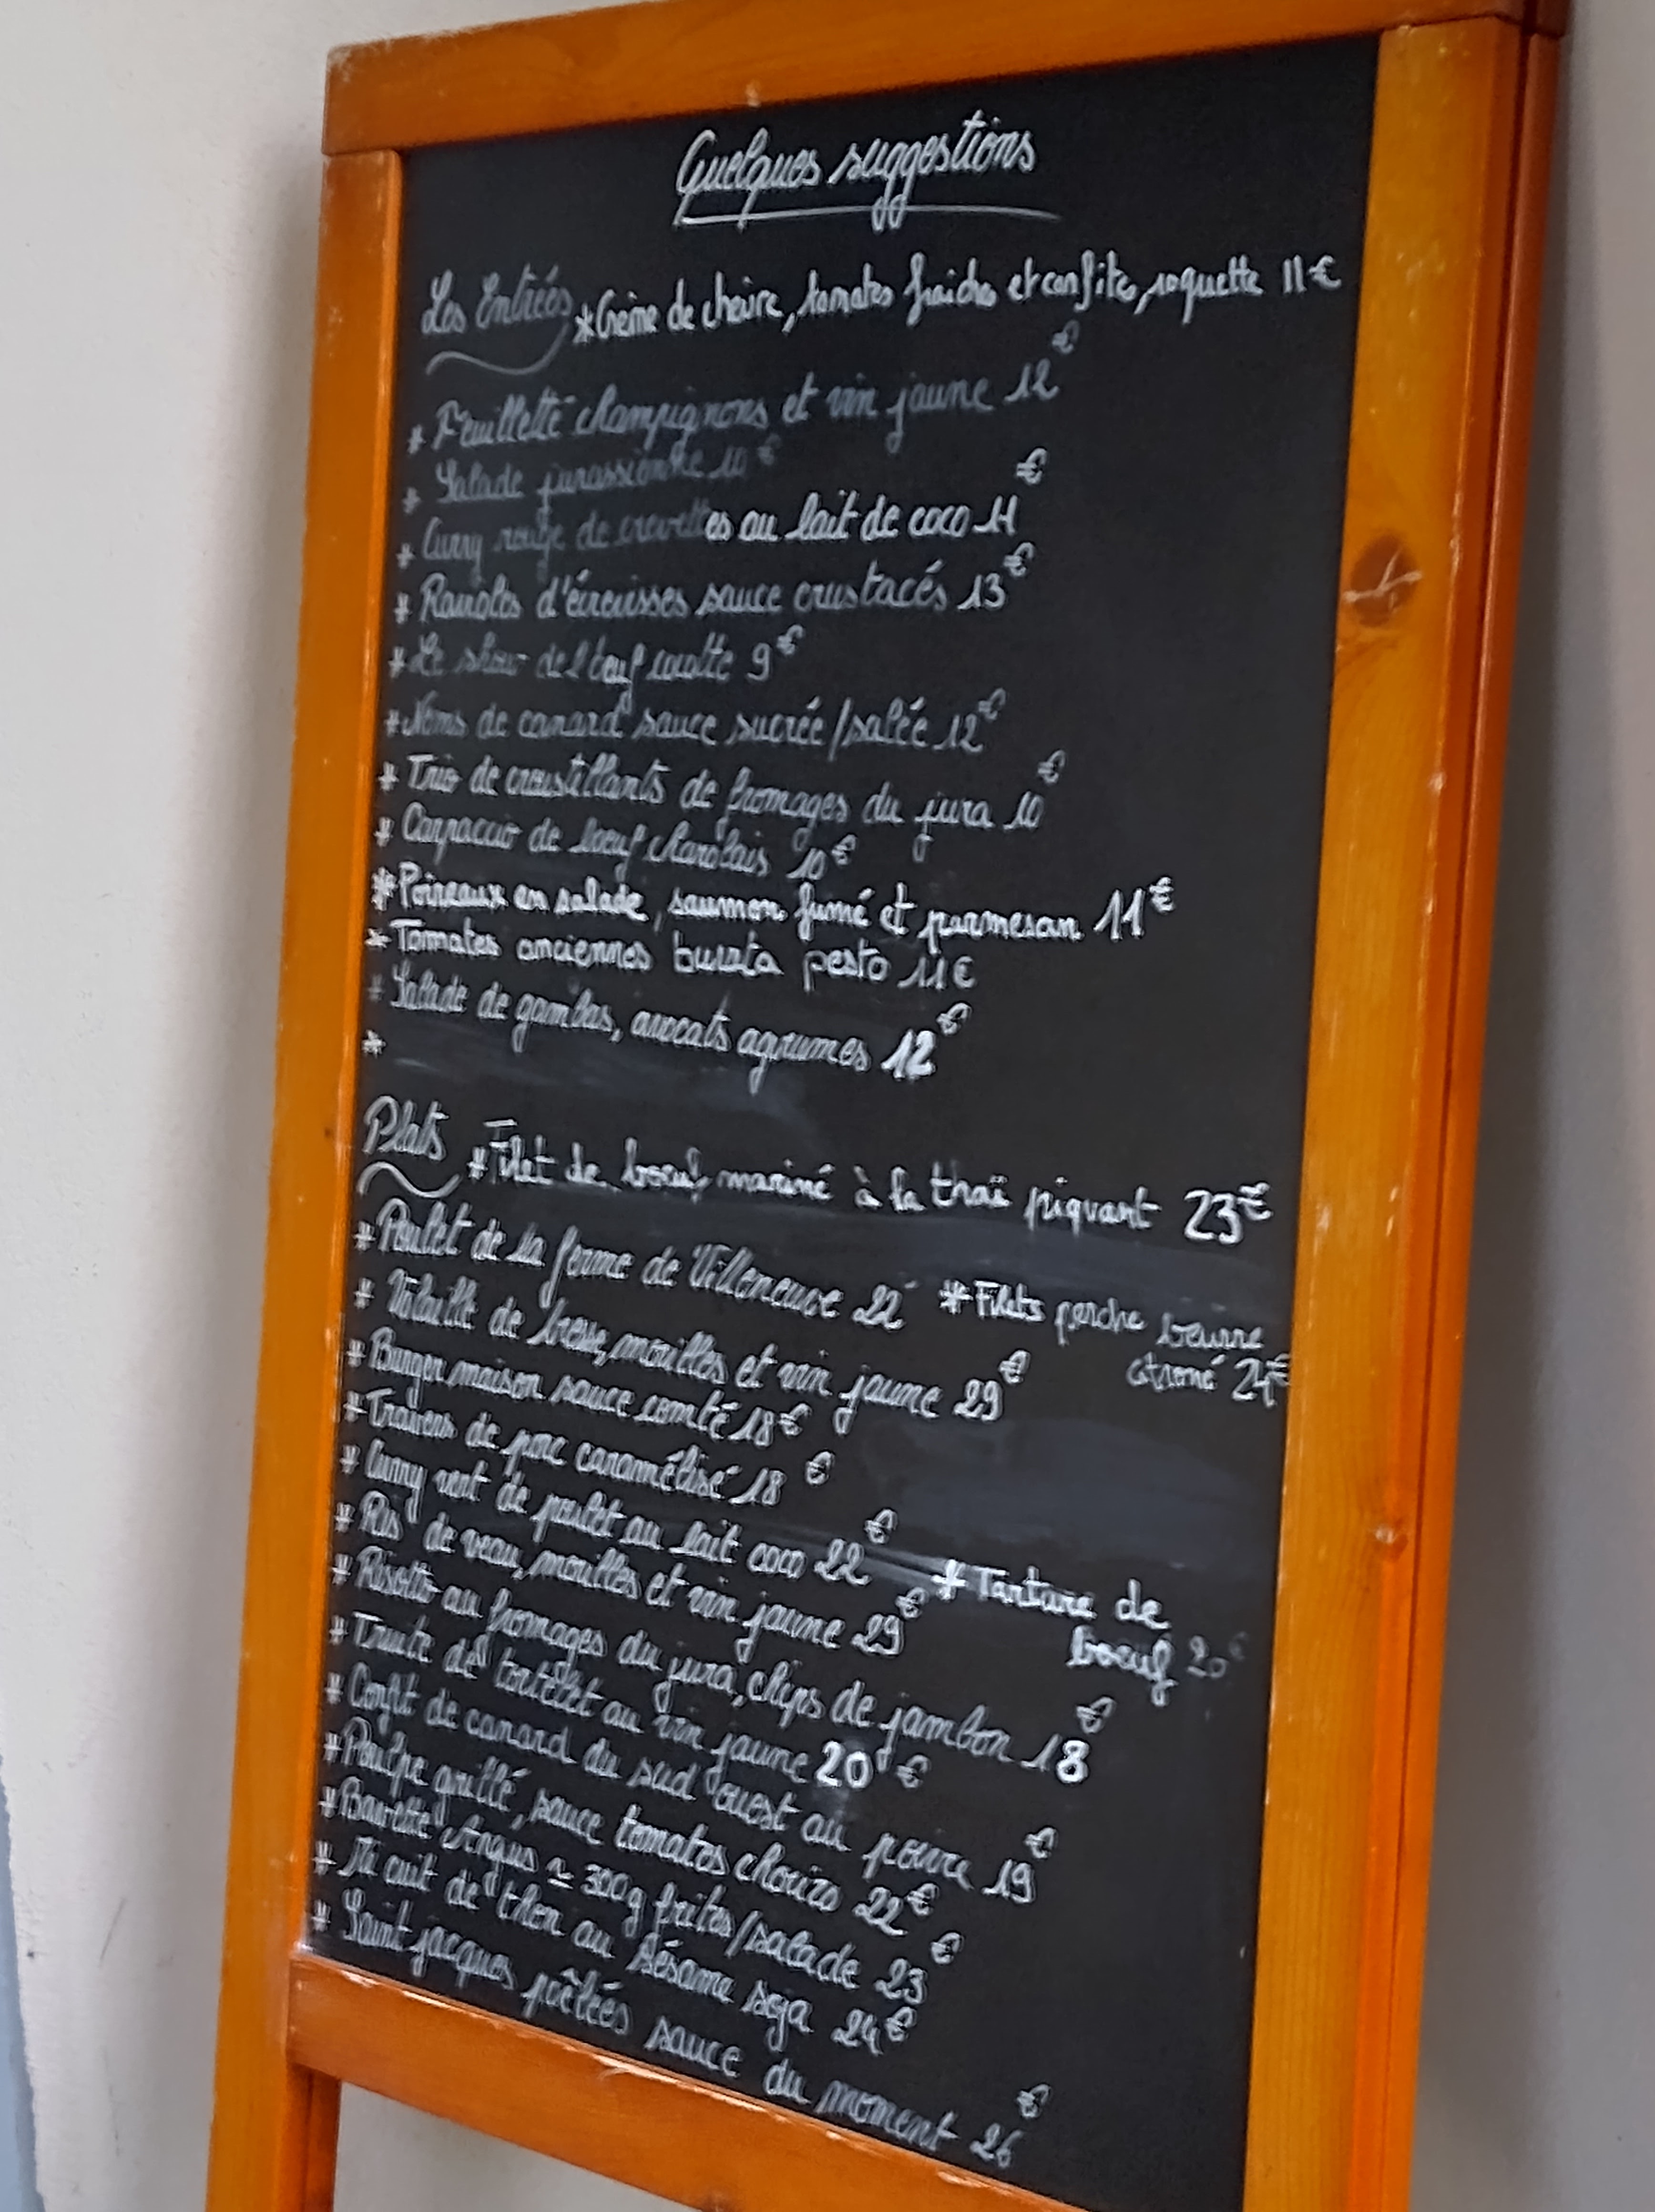 Quelques suggestions
Les Entrées
* Crème de chèvre, tomates fraiches et confites, roquette 11€
* Feuilleté champignons et vin jaune 12€
* Salade jurassienne 10€
* Curry rouge de crevettes au lait de coco 11€
* Ravioles d'écrevisses sauce crustacés 13€
* Le show de l'œuf cocotte 9€
* Nems de canard sauce sucrée/salée 12€
* Trio de croustillants de fromages du jura 10€
* Carpaccio de bœuf charolais 10€
* Poireaux en salade, saumon fumé et parmesan 11€
* Tomates anciennes burrata pesto 11€
* Salade de gambas, avocats agrumes 12€
*
Plats
* Filet de bœuf mariné à la thaï piquant 23€
* Poulet de la ferme de Villeneuve 22
* Filets perche beurre
citroné 24€
* Volaille de bresse, morilles et vin jaune 29€
* Burger maison sauce comté 18€
* Travers de porc caramélisé 18€
* Curry vert de poulet au lait coco 22€
* Tartare de
bœuf 20€
* Ris de veau, morilles et vin jaune 29€
* Risotto au fromages du jura, chips de jambon 18€
* Truite de au vin jaune 20€
* Confit de canard du sud ouest au poivre 19€
* Poulpe grillé, sauce tomates chorizo 22€
* Bavette Angus ≃ 300g frites/salade 23€
* Mi cuit de thon au sésame soja 24€
* Saint jacques poêlées sauce du moment 26€